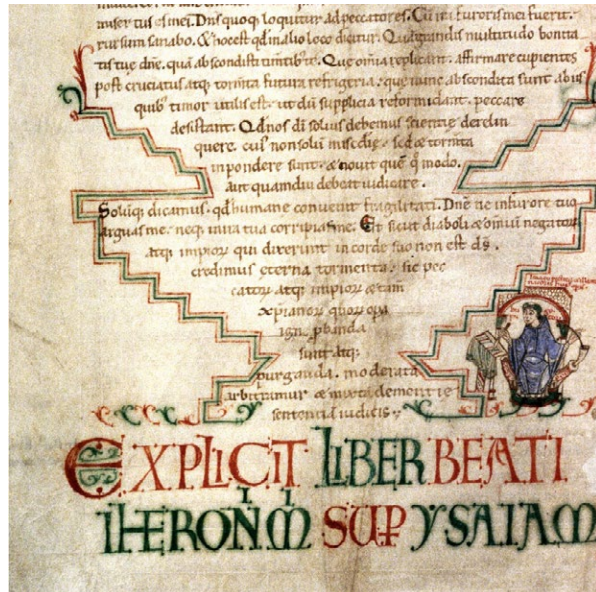 miser tus es mei. Dns quoq loquitur ad peccatores. Cū iræ furoris mei fuerit.
rursum sanabo. & hoc est qd in alio loco dicitur. Quā grandis multitudo bonita
tis tuę dne. quā abscondisti timtibꝰ te. Que omīa replicant. affirmare cupientes
post cruciatus atq; tormta futura refrigeria. que nunc abscondita sunt ab his
quibꝰ timor utilis est. ut dū supplicia reformidant. peccare
desistant. Qd nos dī solius debemus scientię derelin
quere. cuiꝰ non solū miscdię. sed & tormta
in pondere sunt. & nouit quē q modo.
aut quamdiu debeat iudicare.
Solūq; dicamus. qd humane conuenit fragilitati. Dne ne in furore tuo
arguas me. neq; in ira tua corripias me. Et sicut diaboli & omniū negatorꝝ
atq; impiorꝝ qui dixerunt in corde suo non est ds.
credimus ęterna tormenta. sic pec
catorꝝ atq; impiorꝝ & tam
xp̄ianorꝝ quorꝝ opa
igne pbanda
sunt atq;
purganda. moderatā
arbitramur & mixtā clementię
sententiā iudicis
EXPLICIT LIBER BEATI
IHERONIMI SUP YSAIAM